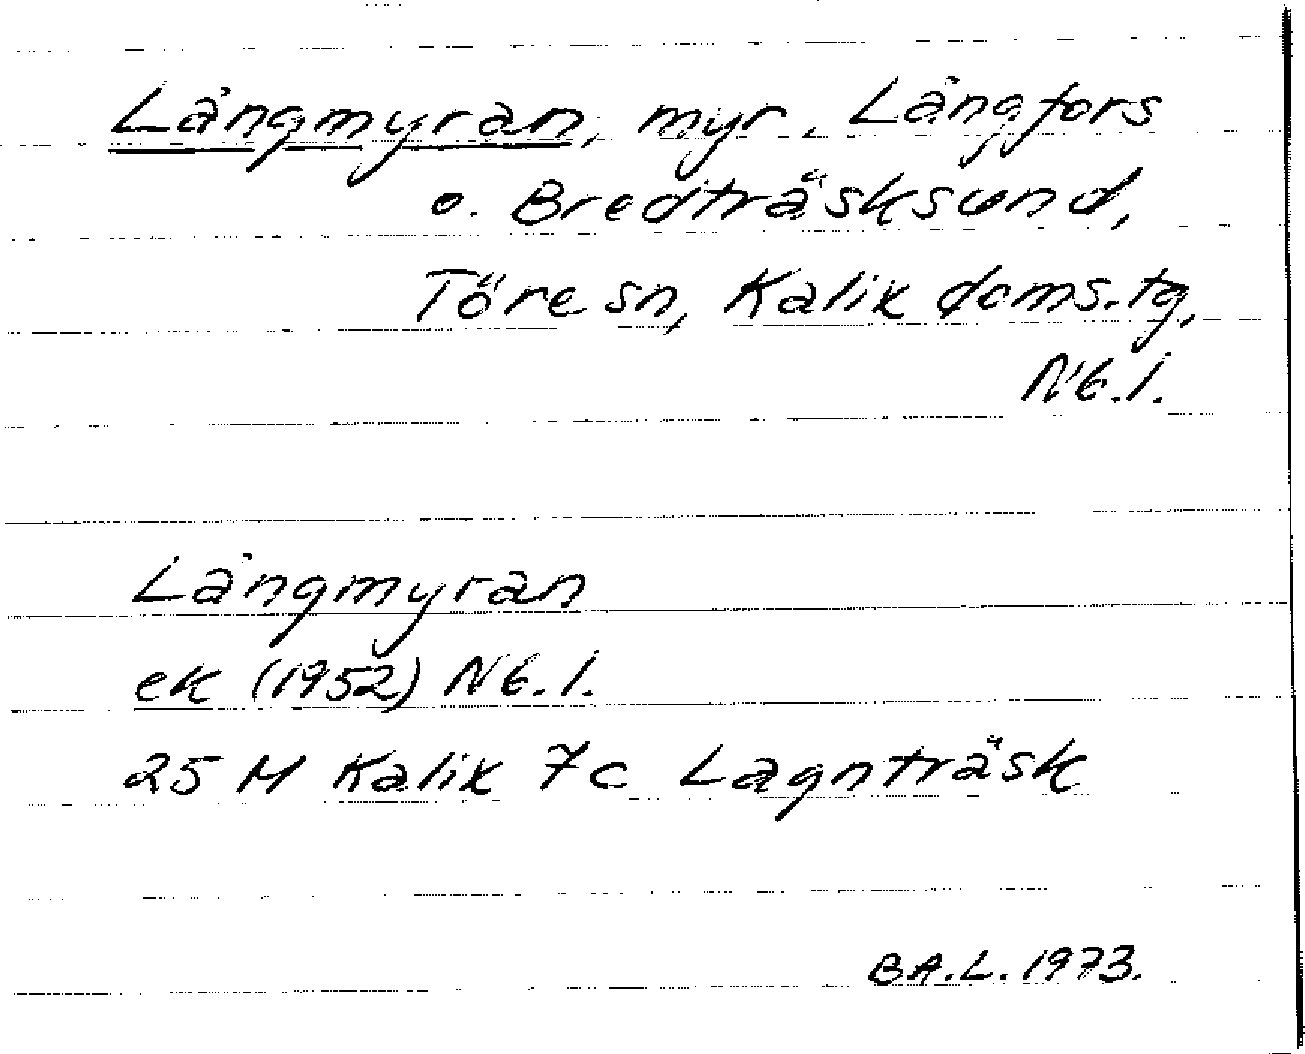 Långmyran, myr. Långfors
o. Bredträsksund,
Töre sn, Kalix doms.tg,
Nb.l.
Långmyran
ek (1952) Nb.l.
25 M Kalix 7c Lagnträsk
BA.L. 1973.